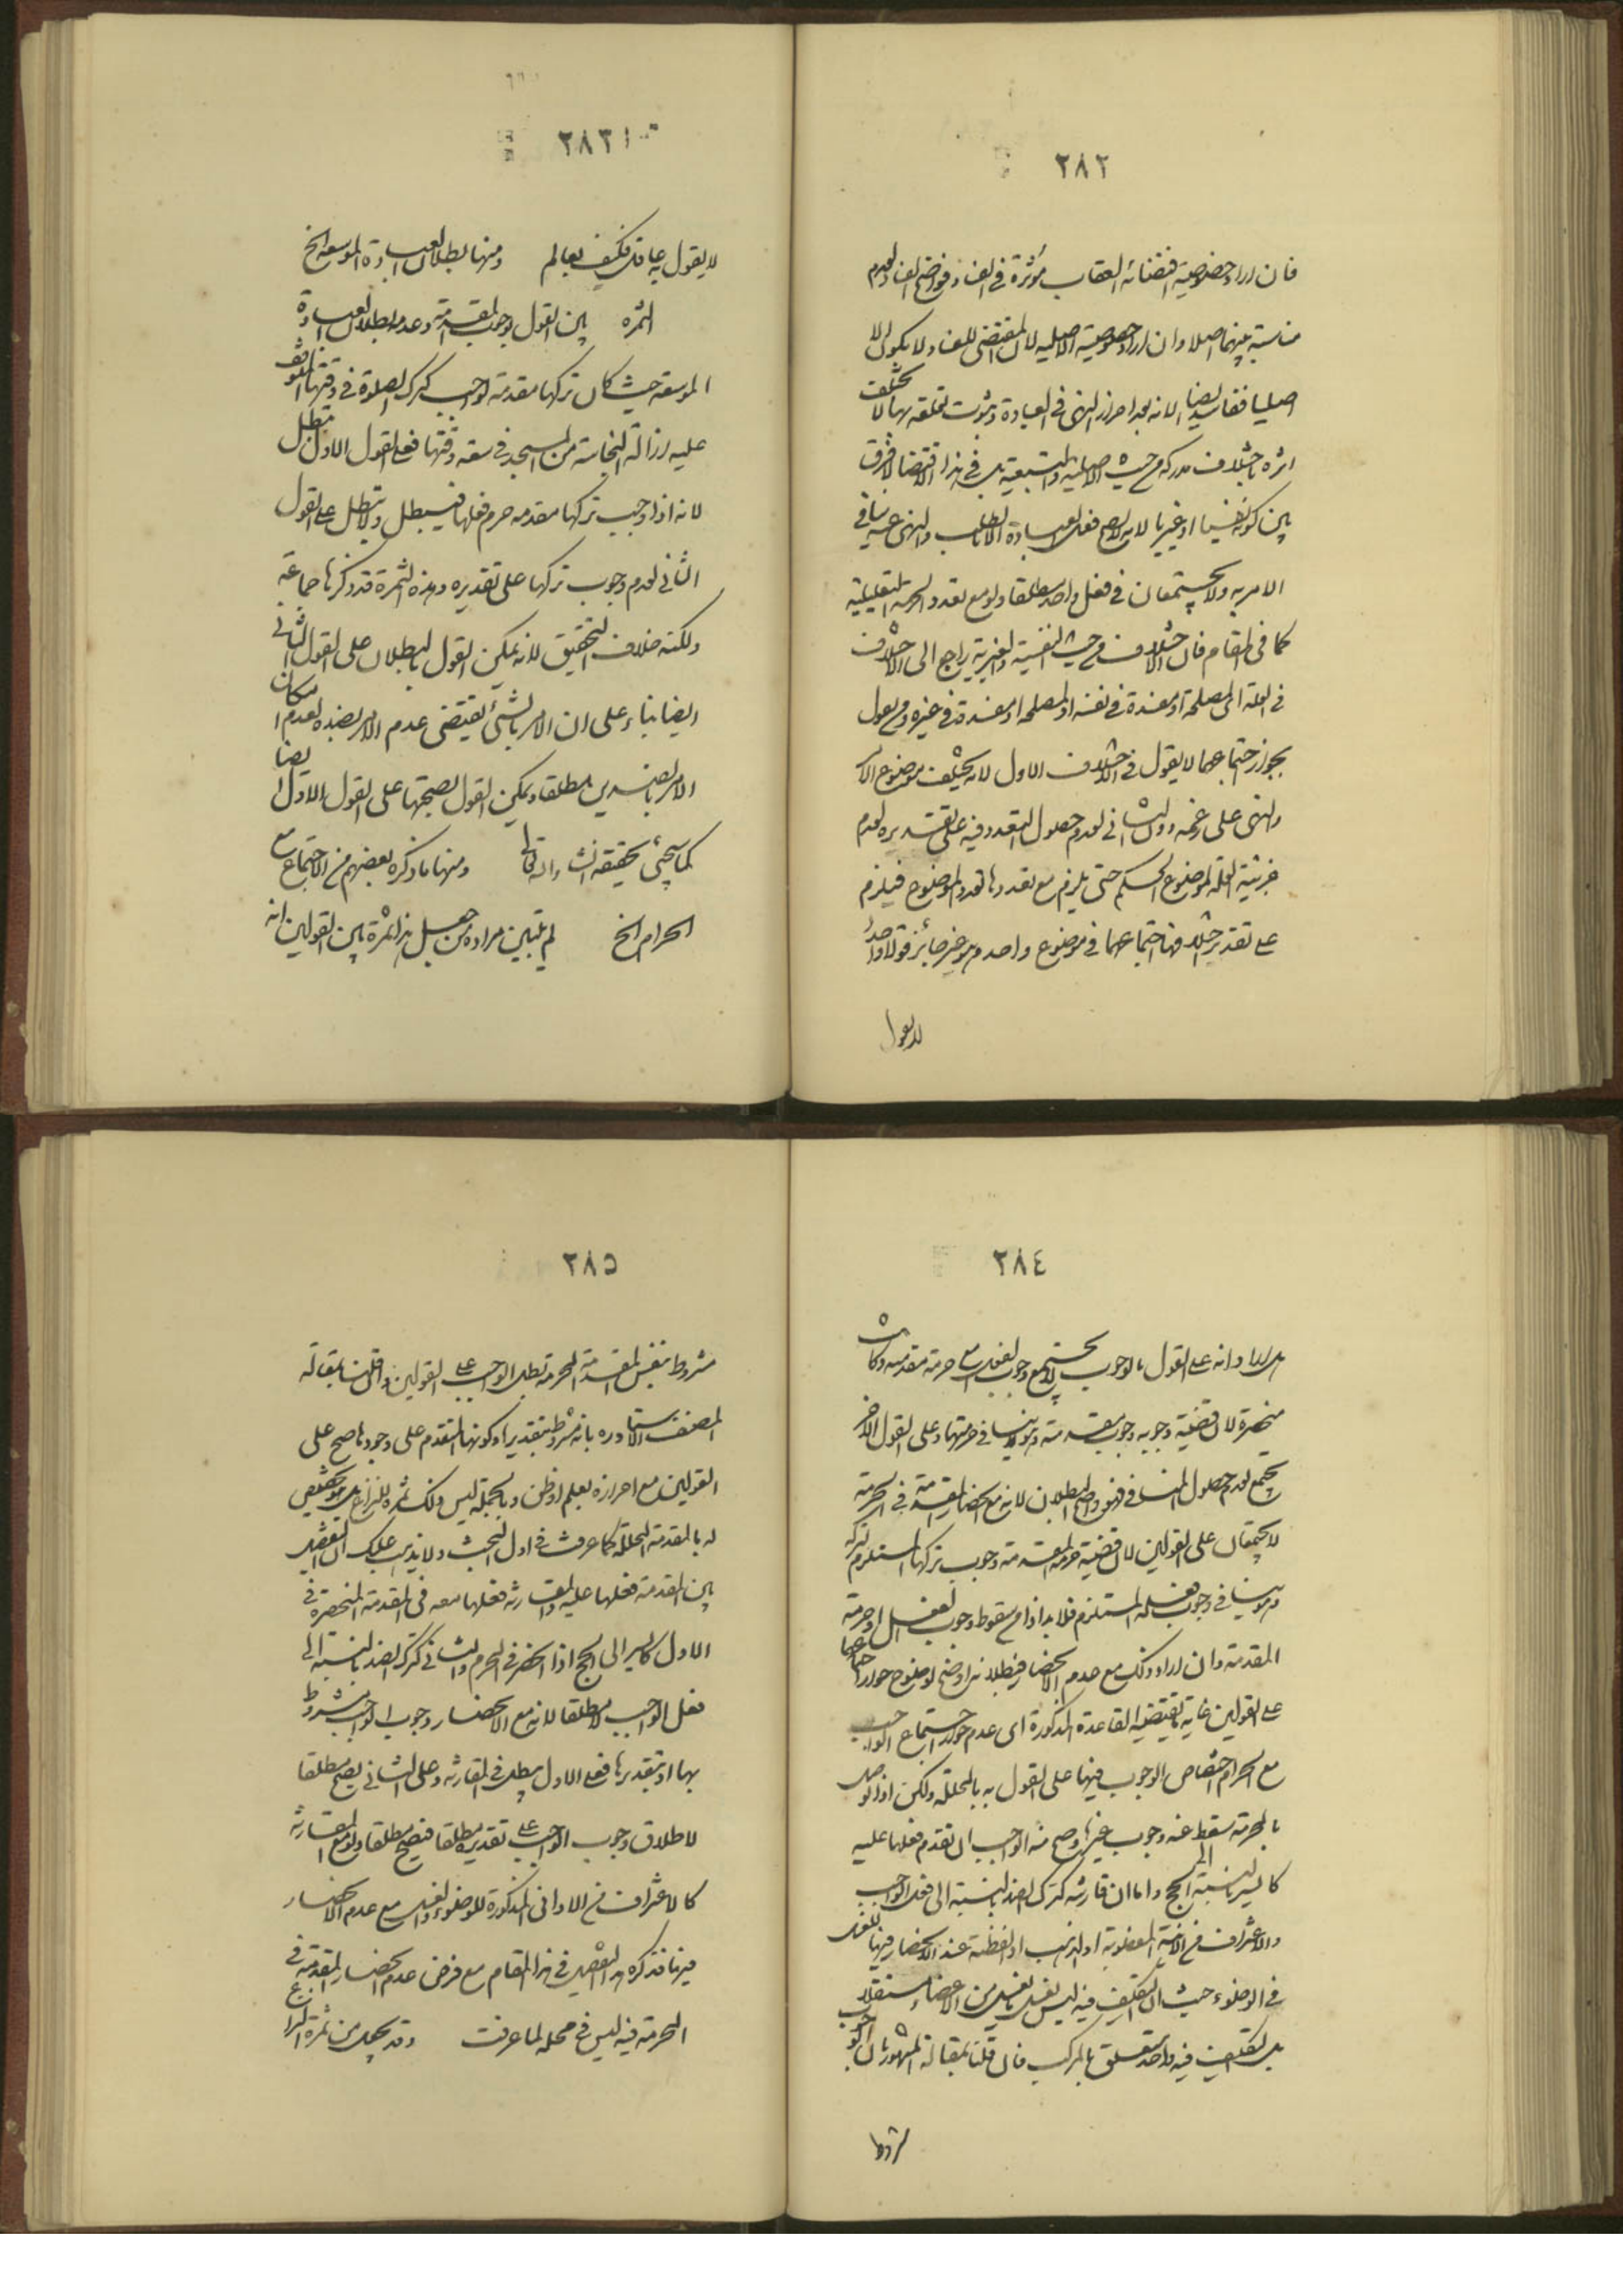 ٢٨٢
فان اراد خصوصية اقتضائه العقاب مؤثرة في الفساد فهو واضح الفساد لعدم
مناسبة بينهما اصلا وان اراد خصوصية الاصلية لان المقتضى للفساد لا يكون الا
اصليا ففاسد ايضا لانه بعد احراز النهى في العبادة وثبوت تعلقه بها لا يختلف
اثره باختلاف مدركه من حيث الاصلية والتبعية بل في هذا الاقتضاء لا فرق
بين كونه نفسيا او غيريا لانه لا يصح فعل العبادة الا بالطلب والنهى عنه ينافي
الامر به ولا يجتمعان في فعل واحد مطلقا ولو مع تعدد الجهة التعليلية
كما في المقام فان الاختلاف من حيث النفسية والغيرية راجع الى الاختلاف
في العلة اى المصلحة او مفسدة في نفسه او المصلحة او مفسدة في غيره ومن يقول
بجواز اجتماعهما لا يقول في الاختلاف الاول لانه يختلف موضوع الامر
والنهى على زعمه دون الثانى لعدم حصول التعدد فيه على تقديره لعدم
جزئية العلة لموضوع الحكم حتى يلزم مع تعددها تعدد الموضوع فيلزم
على تقدير اختلافها اجتماعهما في موضوع واحد وهو غير جائز قولا واحدا
لا يقول
٢٨٣
لا يقول به عاقل فكيف بعالم ومنها بطلان العبادة الموسعة الخ
الثمرة بين القول بوجوب المقدمة وعدمه بطلان العبادة
الموسعة حيث كان تركها مقدمة لواجب كترك الصلوة في وقتها الموقف
عليه ازالة النجاسة من المسجد في سعة وقتها فعلى القول الاول تبطل
لانه اذا وجب تركها مقدمة حرم فعلها فيبطل ولا تبطل على القول
الثانى لعدم وجوب تركها على تقديره وهذه الثمرة قد ذكرها جماعة
ولكنه خلاف التحقيق لانه يمكن القول بالبطلان على القول الثانى
ايضا بناء على ان الامر بالشئ يقتضى عدم الامر بضده لعدم امكان
الامر بالضدين مطلقا ويمكن القول بصحتها على القول الاول ايضا
كما سيجئ تحقيقه انشاء الله تعالى ومنها ما ذكره بعضهم من الاجتماع مع
الحرام الخ لم يتبين مراده من جعل هذا ثمرة بين القولين انه
٢٨٤
هل اراد انه على القول بالوجوب لا يجتمع وجوب الفعل مع حرمة مقدمته وكانت
منحصرة لان قضية وجوبه وجوب مقدمته وهو ينافي حرمتها وعلى القول الآخر
يجتمع لعدم حصول المنافي فهو واضح البطلان لانه مع انحصار المقدمة في الحرمة
لا يجتمعان على القولين لان قضية حرمة المقدمة وجوب تركها المستلزم لتركه
وهو ينافي وجوب فعله المستلزم فلا بد اذا من سقوط وجوب الفعل او حرمة
المقدمة وان اراد ذلك مع عدم الانحصار فبطلانه اوضح لوضوح جواز اجتماعهما
على القولين غاية ما تقتضيه القاعدة المذكورة اى عدم جواز اجتماع الواجب
مع الحرام اختصاص الوجوب فيها على القول به بالمحللة ولكن اذا توصل
بالمحرمة سقط عنه وجوب غيرها وصح منه الواجب ان تقدم فعلها عليه
كالسير بالنسبة الى الحج واما ان قارنته كترك الضد بالنسبة الى فعل الواجب
والاغتراف من الآنية المغصوبة او الذهب او الفضة عند الانحصار فيها للغسل
في الوضوء حيث ان التكليف فيه ليس بغسل من الاعضاء مستقلا
بل التكليف فيه واحد متعلق بالمركب فان قلنا بمقالة المشهور بان الوجوب
مشروط
٢٨٥
مشروط بنفس المقدمة المحرمة بطل الواجب على القولين وان قلنا بمقالة
المصنف الاستاد ره بانه مشروط بتقديرها وكونها المتقدم على وجودها صح على
القولين مع احرازه بعلم او ظن وبالجملة ليس ذلك ثمرة للنزاع بل هو تخصيص
له بالمقدمة المحللة كما عرفت في اول البحث ولا يذهب عليك ان التفصيل
بين المقدمة فعلها عليه والمقارنة فعلها معه في المقدمة المنحصرة في
الاول كالسير الى الحج اذا انحصر في المحرم والثانى كترك الضد بالنسبة الى
فعل الواجب لا مطلقا لانه مع الانحصار وجوب الواجب مشروط
بها او بتقديرها فعلى الاول يبطل في المقارنة وعلى الثانى يصح مطلقا
لاطلاق وجوب الواجب على تقديره مطلقا فتصح مطلقا ولو مع المقارنة
كالاغتراف من الاوانى المذكورة للوضوء والغسل مع عدم الانحصار
فيها فذكره التفصيل في هذا المقام مع فرض عدم انحصار المقدمة في
المحرمة فيه ليس في محله لما عرفت وقد يجعل من ثمرة النزاع